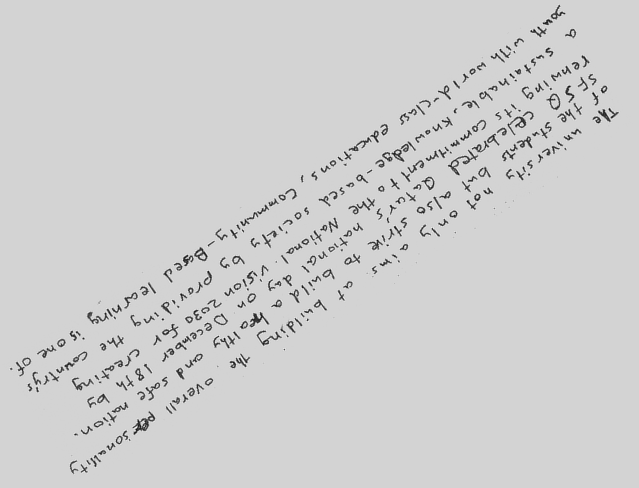 The university not only aims at building the overall personality
of the students but also strive to build a healthy and safe nation.
SFSQ celebrated Qatar's national day on December 18th by
renwing its commitment to the National Vision 2030 for creating
a sustainable, knowledge-based society by providing the country's
youth with world-class educations, Community-Based learning is one of.